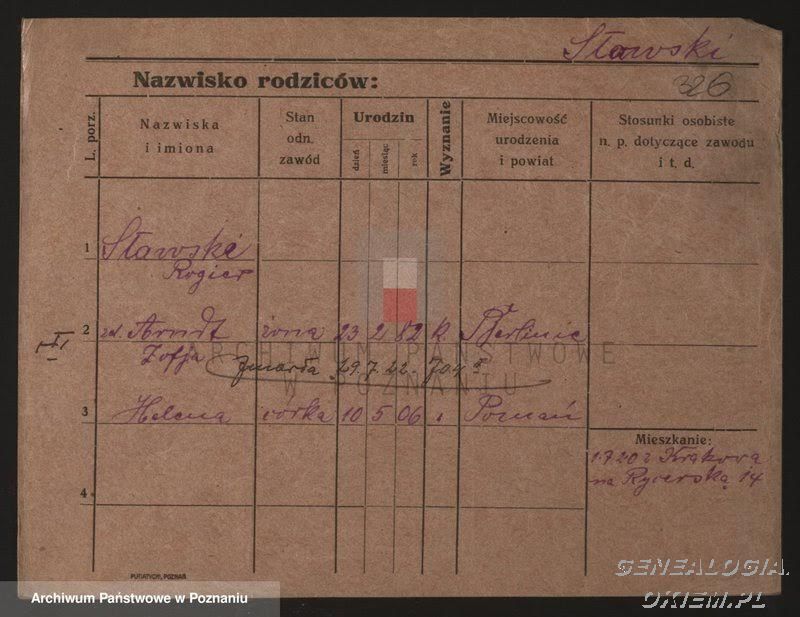 Sławski
326
Nazwisko rodziców:
L. porz.
Nazwiska
i imiona
Stan
odn.
zawód
Urodzin
dzień
miesiąc
rok
Wyznanie
Miejscowość
urodzenia
i powiat
Stosunki osobiste
n. p. dotyczące zawodu
i t. d.
1
Sławski
Rogier
2
zd. Arndt żona 23 2 82 k. Berlinie
Zofja
zmarła 29.7.22. 704
ARCHIWUM PAŃSTWOWE
W POZNANIU
3
Helena córka 10 5 06 " Poznań
Mieszkanie:
1.7.20 z Krakowa
na Rycerską 14
4
PUTIATYCKI, POZNAŃ
Archiwum Państwowe w Poznaniu
GENEALOGIA.
OKIEM.PL